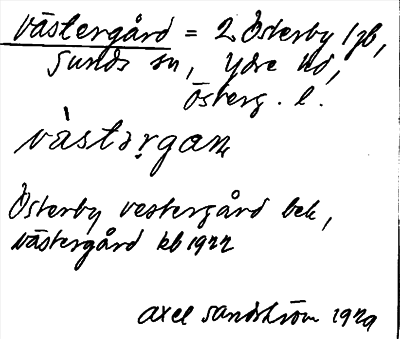 Västergård = 2 Österby 1/2,
Sunds sn, Ydre hd,
Österg. l.
vàstərgaɳ
Österby vestergård bek,
västergård kb 1922
Axel Sandström 1929